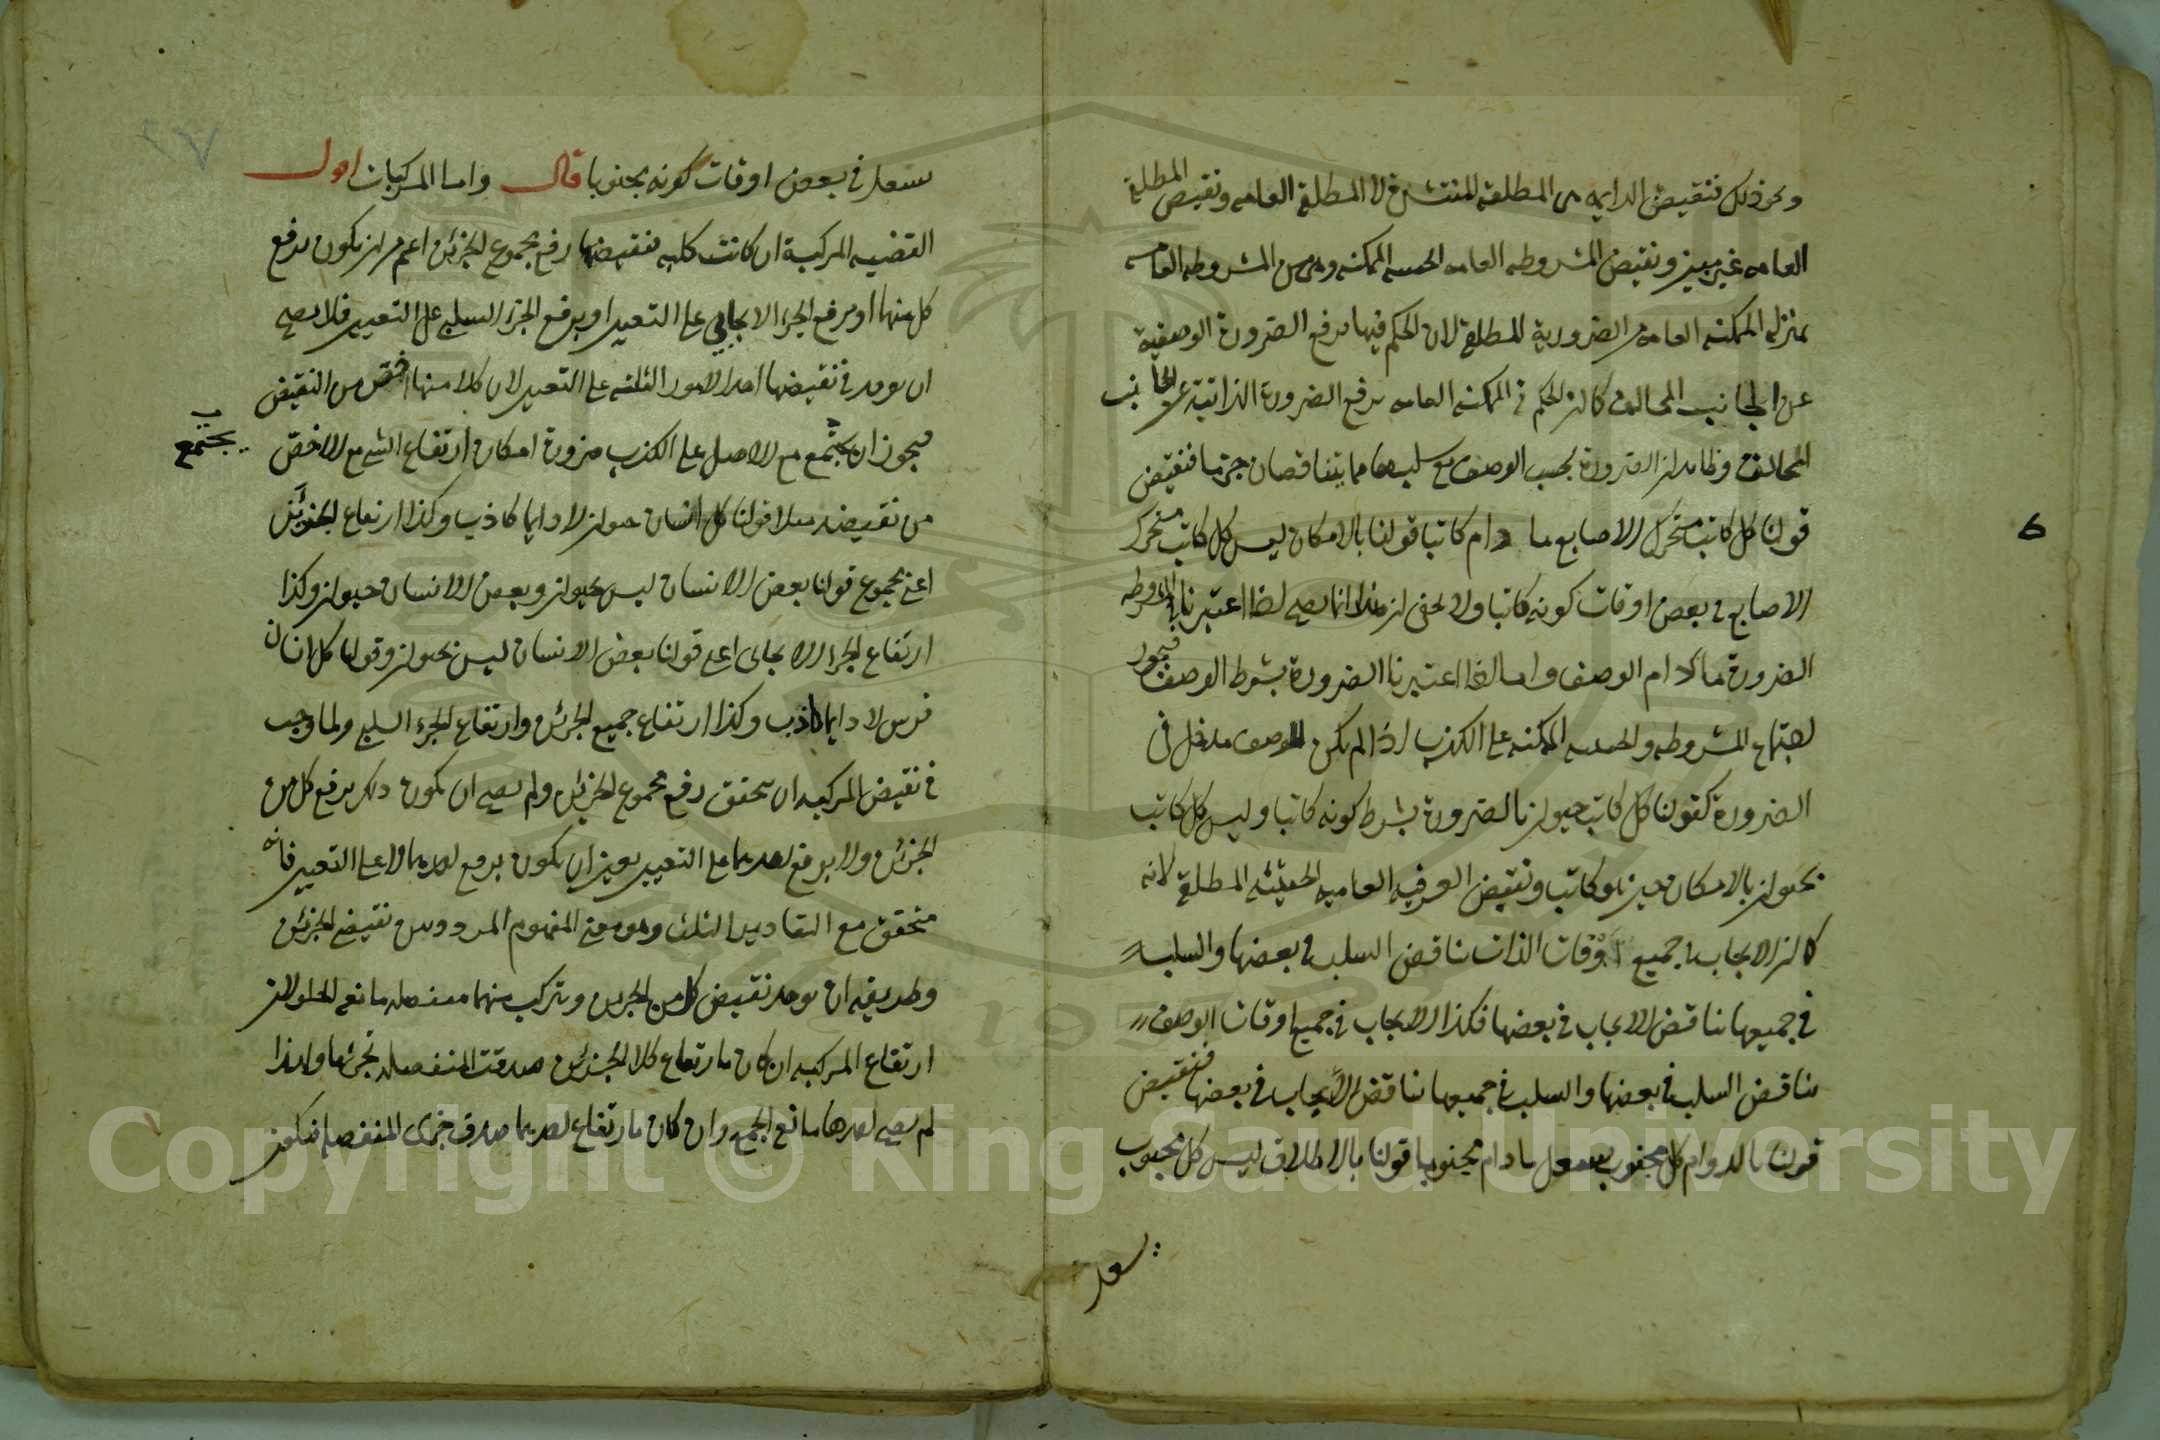 ونحو ذلك فنقيض الدايمه هى المطلقه المنتشرة لا المطلقة العامه ونقيض المطلقة
العامه غير مبين ونقيض المشروطه العامه الحينيه الممكنه وهى من المشروطه العامه
بمنزله الممكنه العامه من الضرورية المطلقة لان الحكم فيها برفع الضرورة الوصفية
عن الجانب المخالف كما ان الحكم فى الممكنه العامه برفع الضرورة الذاتية عن الجانب
المخالف وظاهر ان الضرورة بحسب الوصف مع سلبها مما يتناقضان جزما فنقيض
قولنا كل كاتب متحرك الاصابع ما دام كاتبا قولنا بالامكان ليس كل كاتب متحرك
الاصابع فى بعض اوقات كونه كاتبا ولا يخفى ان هذا انما يصح اذا اعتبرنا بالمشروطه
الضرورة ما دام الوصف واما اذا اعتبرنا الضرورة بشرط الوصف فيجوز
اجتماع المشروطه والحينيه الممكنه على الكذب اذا لم يكن للوصف مدخل فى
الضرورة كقولنا كل كاتب حيوان بالضرورة بشرط كونه كاتبا وليس كل كاتب
بحيوان بالامكان حين هو كاتب ونقيض العرفيه العاميه الحينيه المطلقة لانه
كما ان الايجاب فى جميع اوقات الذات يناقض السلب فى بعضها والسلب
فى جميعها يناقض الايجاب فى بعضها فكذا الايجاب فى جميع اوقات الوصف
يناقض السلب فى بعضها والسلب فى جميعها يناقض الايجاب فى بعضها فنقيض
قولنا بالدوام كل مجنوب يسعل ما دام مجنوبا قولنا بالاطلاق ليس كل مجنوب
يسعل
6
يسعل فى بعض اوقات كونه مجنوبا قال واما المركبات اقول
القضيه المركبة ان كانت كليه فنقيضها رفع مجموع الجزئين اعم من ان يكون برفع
كل منها او برفع الجزء الايجابي على التعيين او برفع الجزء السلبي على التعيين فلا يصح
ان يوخذ فى نقيضها احد الامور الثلثه على التعيين لان كلا منها اخص من النقيض
فيجوز ان يجتمع مع الاصل على الكذب ضرورة امكان ارتفاع الشي مع الاخص
يجتمع
من نقيضه مثلا قولنا كل انسان حيوان لا دايما كاذب وكذا ارتفاع الجزئين
اعنى مجموع قولنا بعض الانسان ليس بحيوان وبعض الانسان حيوان وكذا
ارتفاع الجزء الايجابى اعنى قولنا بعض الانسان ليس بحيوان وقولنا كل انسان
فرس لا دايما كاذب وكذا ارتفاع جميع الجزئين وارتفاع الجزء السلبي ولما وجب
فى نقيض المركبه ان يتحقق رفع مجموع الجزئين ولم يصح ان يكون ذلك برفع كل من
الجزئين ولا برفع احدهما على التعيين تعين ان يكون برفع احدهما لا على التعيين فانه
متحقق مع التقادير الثلث وهو معنى المفهوم المردد بين نقيضى الجزئين
وطريقه ان يوخذ نقيض كل من الجزين ويتركب منهما منفصله مانعه الخلو لان
ارتفاع المركبه ان كان بارتفاع كلا الجزئين صدقت المنفصله بجزئها ولهذا
لم يصح اخذها مانع الجمع وان كان بارتفاع احدهما صدق جزى المنفصله فيكون
٢٧
Copyright © King Saud University